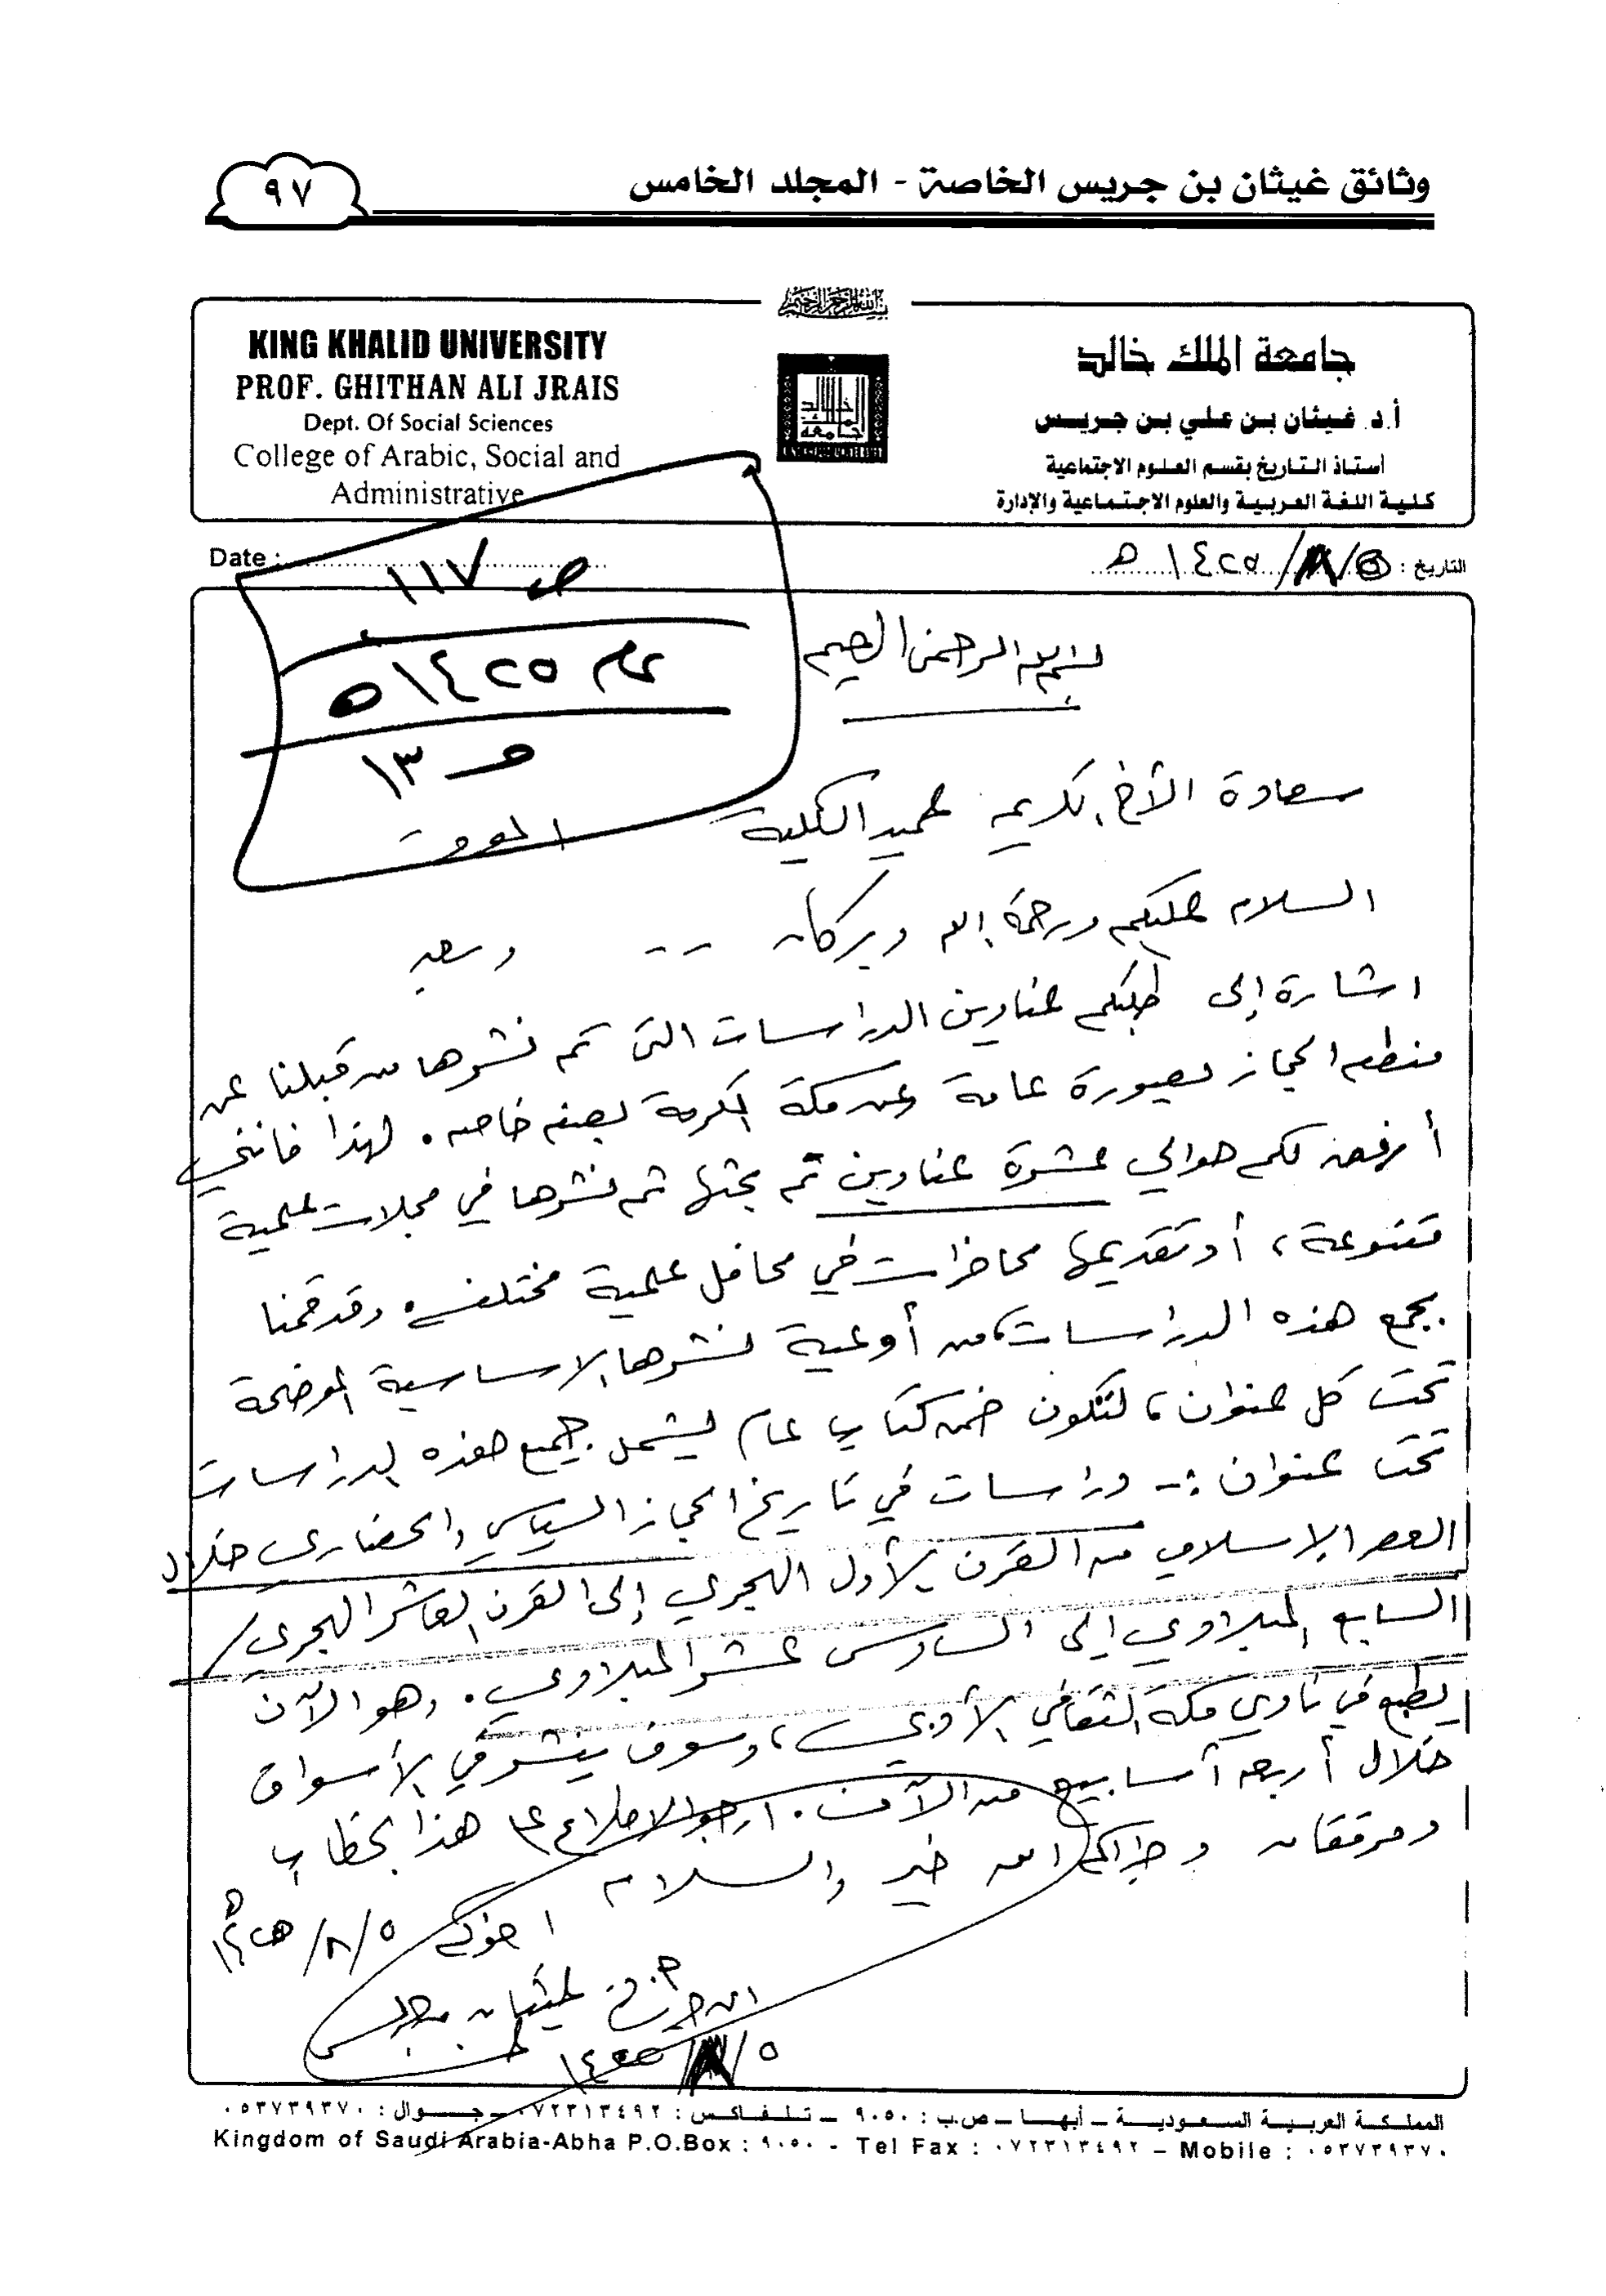 وثائق غيثان بن جريس الخاصة - المجلد الخامس
٩٧
بسم الله الرحمن الرحيم
KING KHALID UNIVERSITY
PROF. GHITHAN ALI JRAIS
Dept. Of Social Sciences
College of Arabic, Social and
Administrative
جامعة الملك خالد
أ.د. غيثان بن علي بن جريس
أستاذ التاريخ بقسم العلوم الاجتماعية
كلية اللغة العربية والعلوم الاجتماعية والإدارة
التاريخ : ٥/٨/١٤٢٥ هـ
Date :
ص ١١٧
عام ١٤٢٥ هـ
١٣
بسم الله الرحمن الرحيم
سعادة الأخ الكريم عميد الكلية الموقر
السلام عليكم ورحمة الله وبركاته -- وبعد
اشارة إلى طلبكم عناوين الدراسات التي تم نشرها من قبلنا عن
منطقة الحجاز بصورة عامة وعن مكة المكرمة بصفة خاصه . لهذا فانني
أرفق لكم حوالي عشرة عناوين تم بحثها ثم نشرها في مجلات علمية
متنوعة ، أو تقديمها محاضرات في محافل علمية مختلفة . وقد قمنا
بجمع هذه الدراسات من أوعية نشرها الاساسية الموضحة
تحت كل عنوان ، لتكون ضمن كتاب عام ليشمل جميع هذه الدراسات
تحت عنوان :- دراسات في تاريخ الحجاز السياسي والحضاري خلال
العصر الإسلامي من القرن الأول الهجري إلى القرن العاشر الهجري /
السابع الميلادي إلى السادس عشر الميلادي . وهو الآن
يطبع في نادي مكة الثقافي الأدبي ، وسوف ينشر في الأسواق
خلال أربعة أسابيع من الآن . ارجو الاطلاع على هذا الخطاب
ومرفقاته وجزاكم الله خير والسلام
اخوكم ٥/٨/١٤٢٥ هـ
غيثان بن جريس
٥/٨/١٤٢٥
المملكة العربية السعودية – أبها – ص.ب : ٩٠٥٠ – تلفاكس : ٠٧٢٣١٣٤٩٢ – جوال : ٠٥٣٧٣٩٣٧٠
Kingdom of Saudi Arabia-Abha P.O.Box : ٩٠٥٠ - Tel Fax : ٠٧٢٣١٣٤٩٢ – Mobile : ٠٥٣٧٣٩٣٧٠